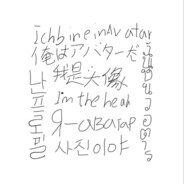 ichbineinAvatar
俺はアバターだ
我是头像
I'm the head
Я-аватар
사진이야
난프로필